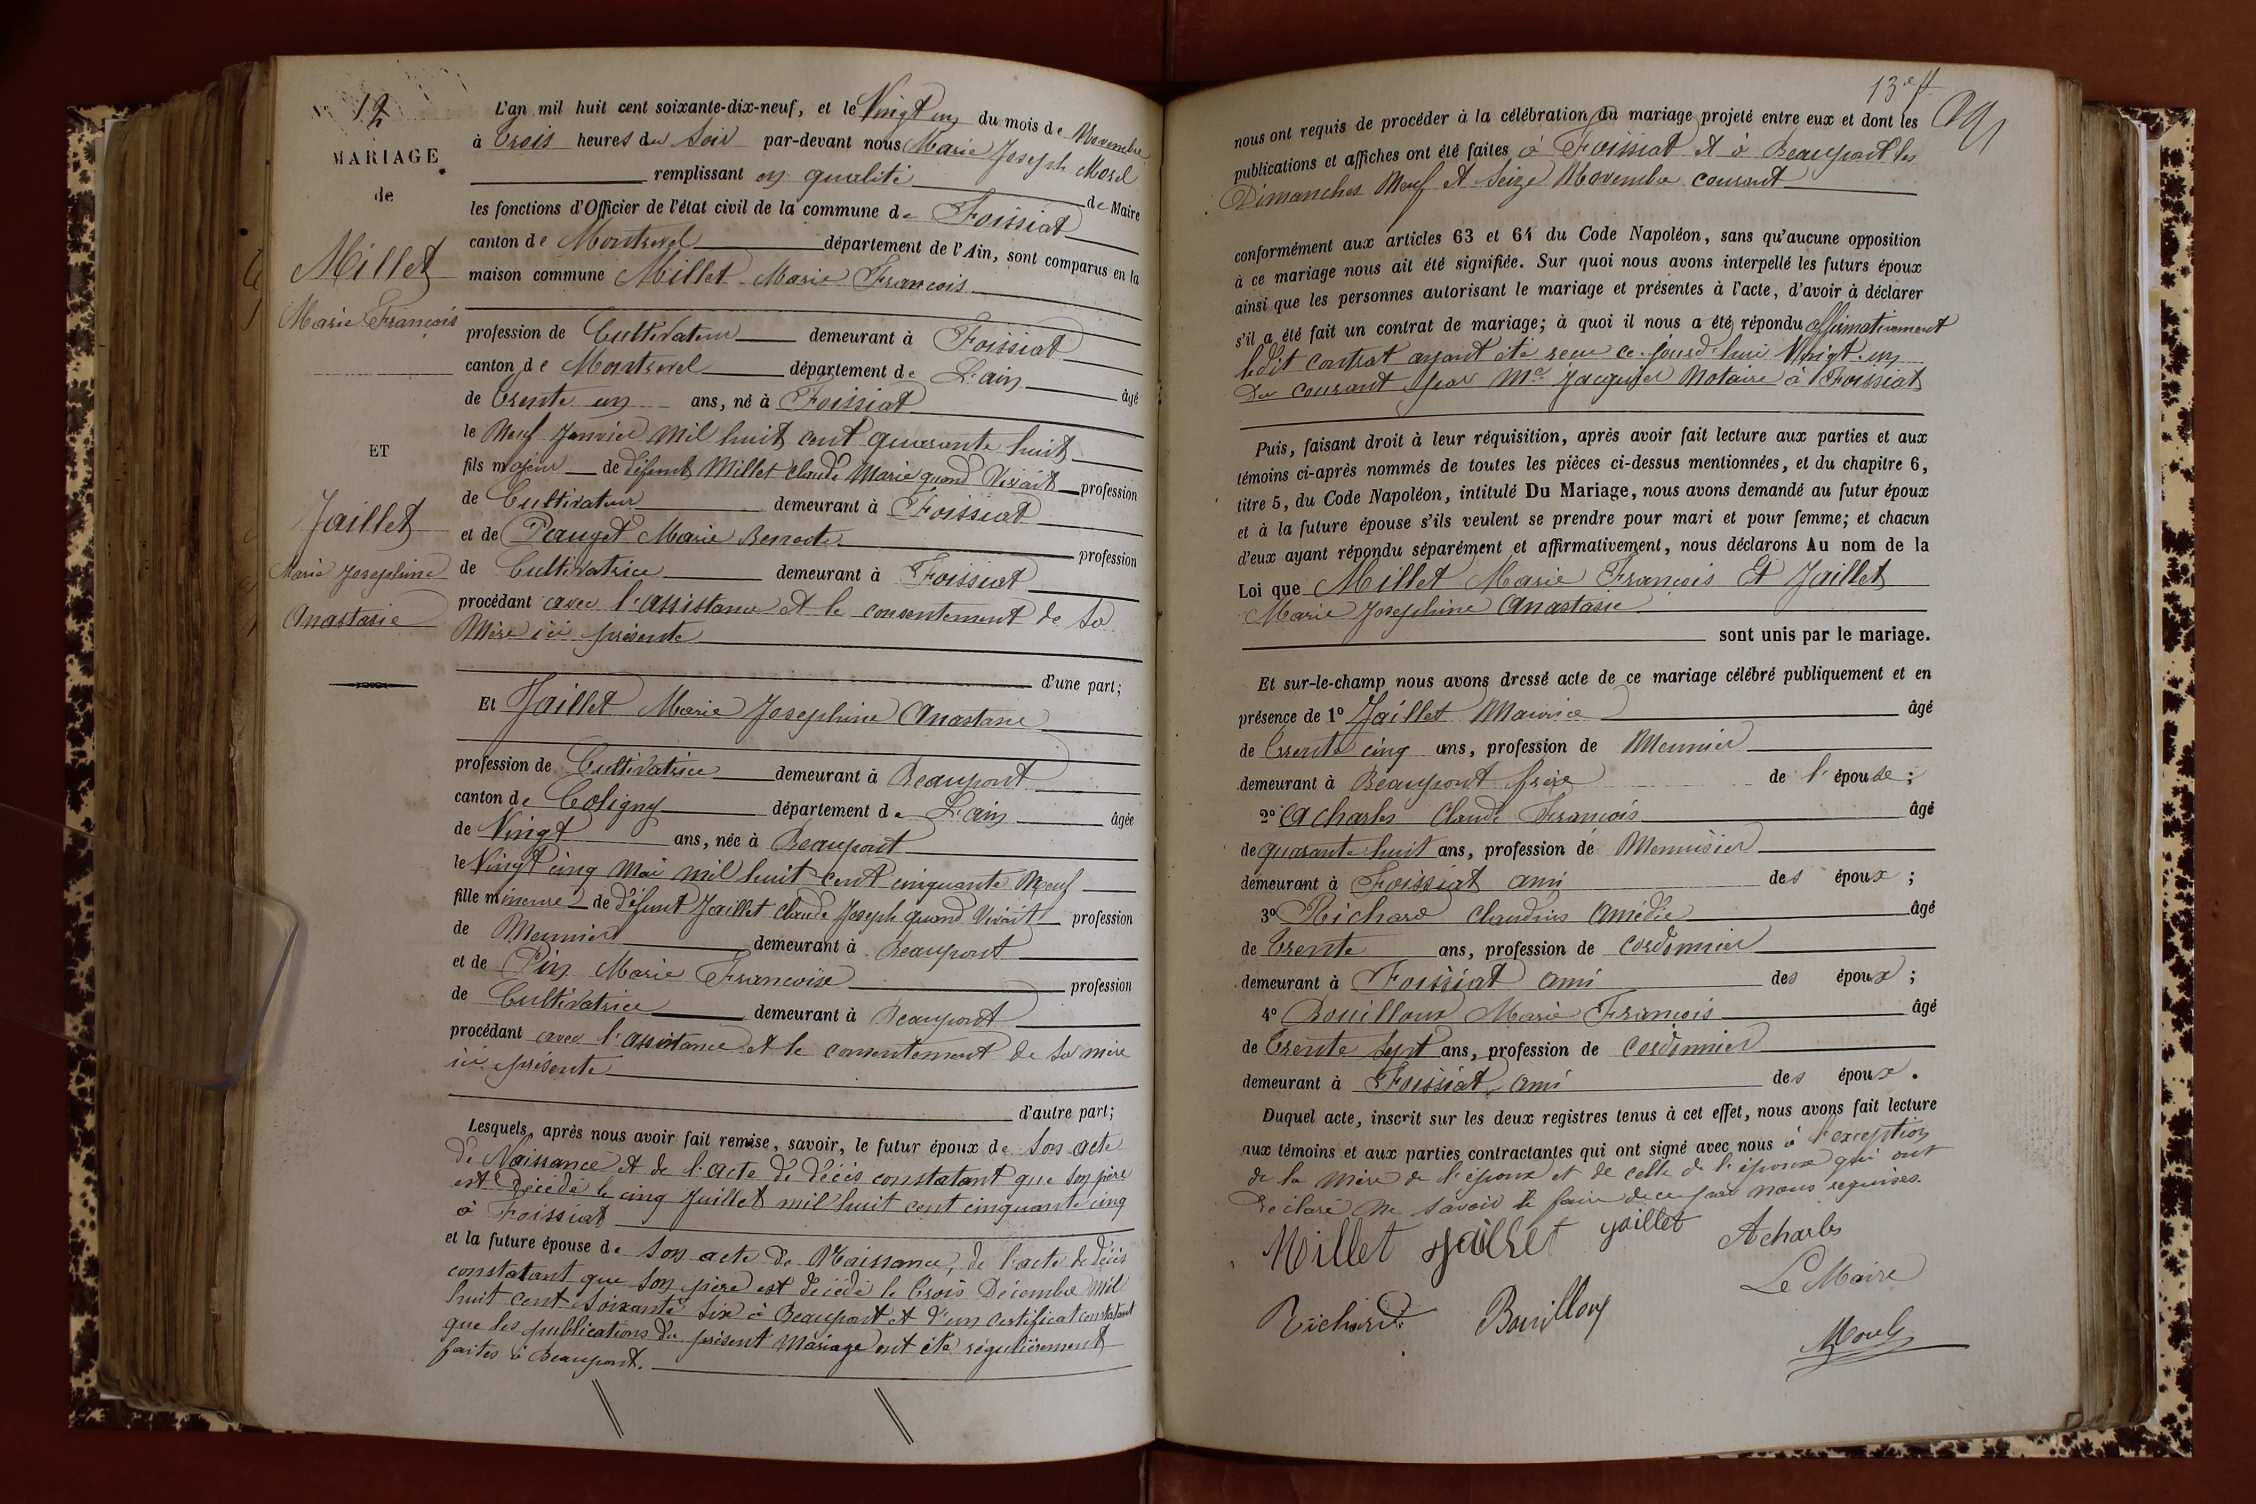 N° 12
MARIAGE
de
Millet
Marie François
ET
Jaillet
Marie Josephine
Anastasie
L'an mil huit cent soixante-dix-neuf, et le Vingt un du mois de Novembre
à trois heures du Soir par-devant nous Marie Joseph Morel
remplissant en qualité de Maire
les fonctions d'Officier de l'état civil de la commune de Foissiat
canton de Montrevel département de l'Ain, sont comparus en la
maison commune Millet Marie François
profession de Cultivateur demeurant à Foissiat
canton de Montrevel département de L'ain âgé
de trente un ans, né à Foissiat
le Neuf Janvier mil huit cent quarante huit
fils majeur de défunt Millet Claude Marie quand Vivait profession
de Cultivateur demeurant à Foissiat
et de Pauget Marie Benoite profession
de Cultivatrice demeurant à Foissiat
procédant avec l'assistance et le consentement de sa
Mère ici présente
d'une part;
Et Jaillet Marie Josephine Anastasie
profession de Cultivatrice demeurant à Beaupont
canton de Coligny département de L'ain âgée
de Vingt ans, née à Beaupont
le Vingt cinq Mai mil huit cent cinquante Neuf
fille mineure de défunt Jaillet Claude Joseph quand Vivait profession
de Meunier demeurant à Beaupont
et de Pin Marie Françoise profession
de Cultivatrice demeurant à Beaupont
procédant avec l'assistance et le consentement de sa mère
ici présente
d'autre part;
Lesquels, après nous avoir fait remise, savoir, le futur époux de Son acte
de Naissance et de l'acte de décès constatant que son père
est décédé le cinq Juillet mil huit cent cinquante cinq
à Foissiat
et la future épouse de Son acte de Naissance, de l'acte de décès
constatant que son père est décédé le trois Décembre Mil
huit cent soixante six à Beaupont et d'un certificat constatant
que les publications du présent Mariage ont été régulièrement
faites à Beaupont.
13e ff
nous ont requis de procéder à la célébration du mariage projeté entre eux et dont les
publications et affiches ont été faites à Foissiat et à Beaupont les
Dimanches Neuf et Seize Novembre courant
conformément aux articles 63 et 64 du Code Napoléon, sans qu'aucune opposition
à ce mariage nous ait été signifiée. Sur quoi nous avons interpellé les futurs époux
ainsi que les personnes autorisant le mariage et présentes à l'acte, d'avoir à déclarer
s'il a été fait un contrat de mariage; à quoi il nous a été répondu affirmativement
ledit contrat ayant été reçu ce jourd'hui Vingt un
du courant par Me Notaire à Foissiat
Puis, faisant droit à leur réquisition, après avoir fait lecture aux parties et aux
témoins ci-après nommés de toutes les pièces ci-dessus mentionnées, et du chapitre 6,
titre 5, du Code Napoléon, intitulé Du Mariage, nous avons demandé au futur époux
et à la future épouse s'ils veulent se prendre pour mari et pour femme; et chacun
d'eux ayant répondu séparément et affirmativement, nous déclarons Au nom de la
Loi que Millet Marie François Et Jaillet
Marie Josephine Anastasie
sont unis par le mariage.
Et sur-le-champ nous avons dressé acte de ce mariage célébré publiquement et en
présence de 1° Jaillet Maurice âgé
de trente cinq ans, profession de Meunier
demeurant à Beaupont frère de l'épouse;
2° Acharles Claude François âgé
de quarante huit ans, profession de Menuisier
demeurant à Foissiat ami des époux;
3° Richard Claudius Amédée âgé
de trente ans, profession de cordonnier
demeurant à Foissiat ami des époux;
4° Bouilloux Marie François âgé
de trente sept ans, profession de cordonnier
demeurant à Foissiat ami des époux.
Duquel acte, inscrit sur les deux registres tenus à cet effet, nous avons fait lecture
aux témoins et aux parties contractantes qui ont signé avec nous à l'exception
de la mère de l'époux et de celle de l'épouse qui ont
déclaré ne savoir le faire de ce par nous requises.
Millet Jaillet Jaillet Acharles
Le Maire
Richard Bouilloux
Morel